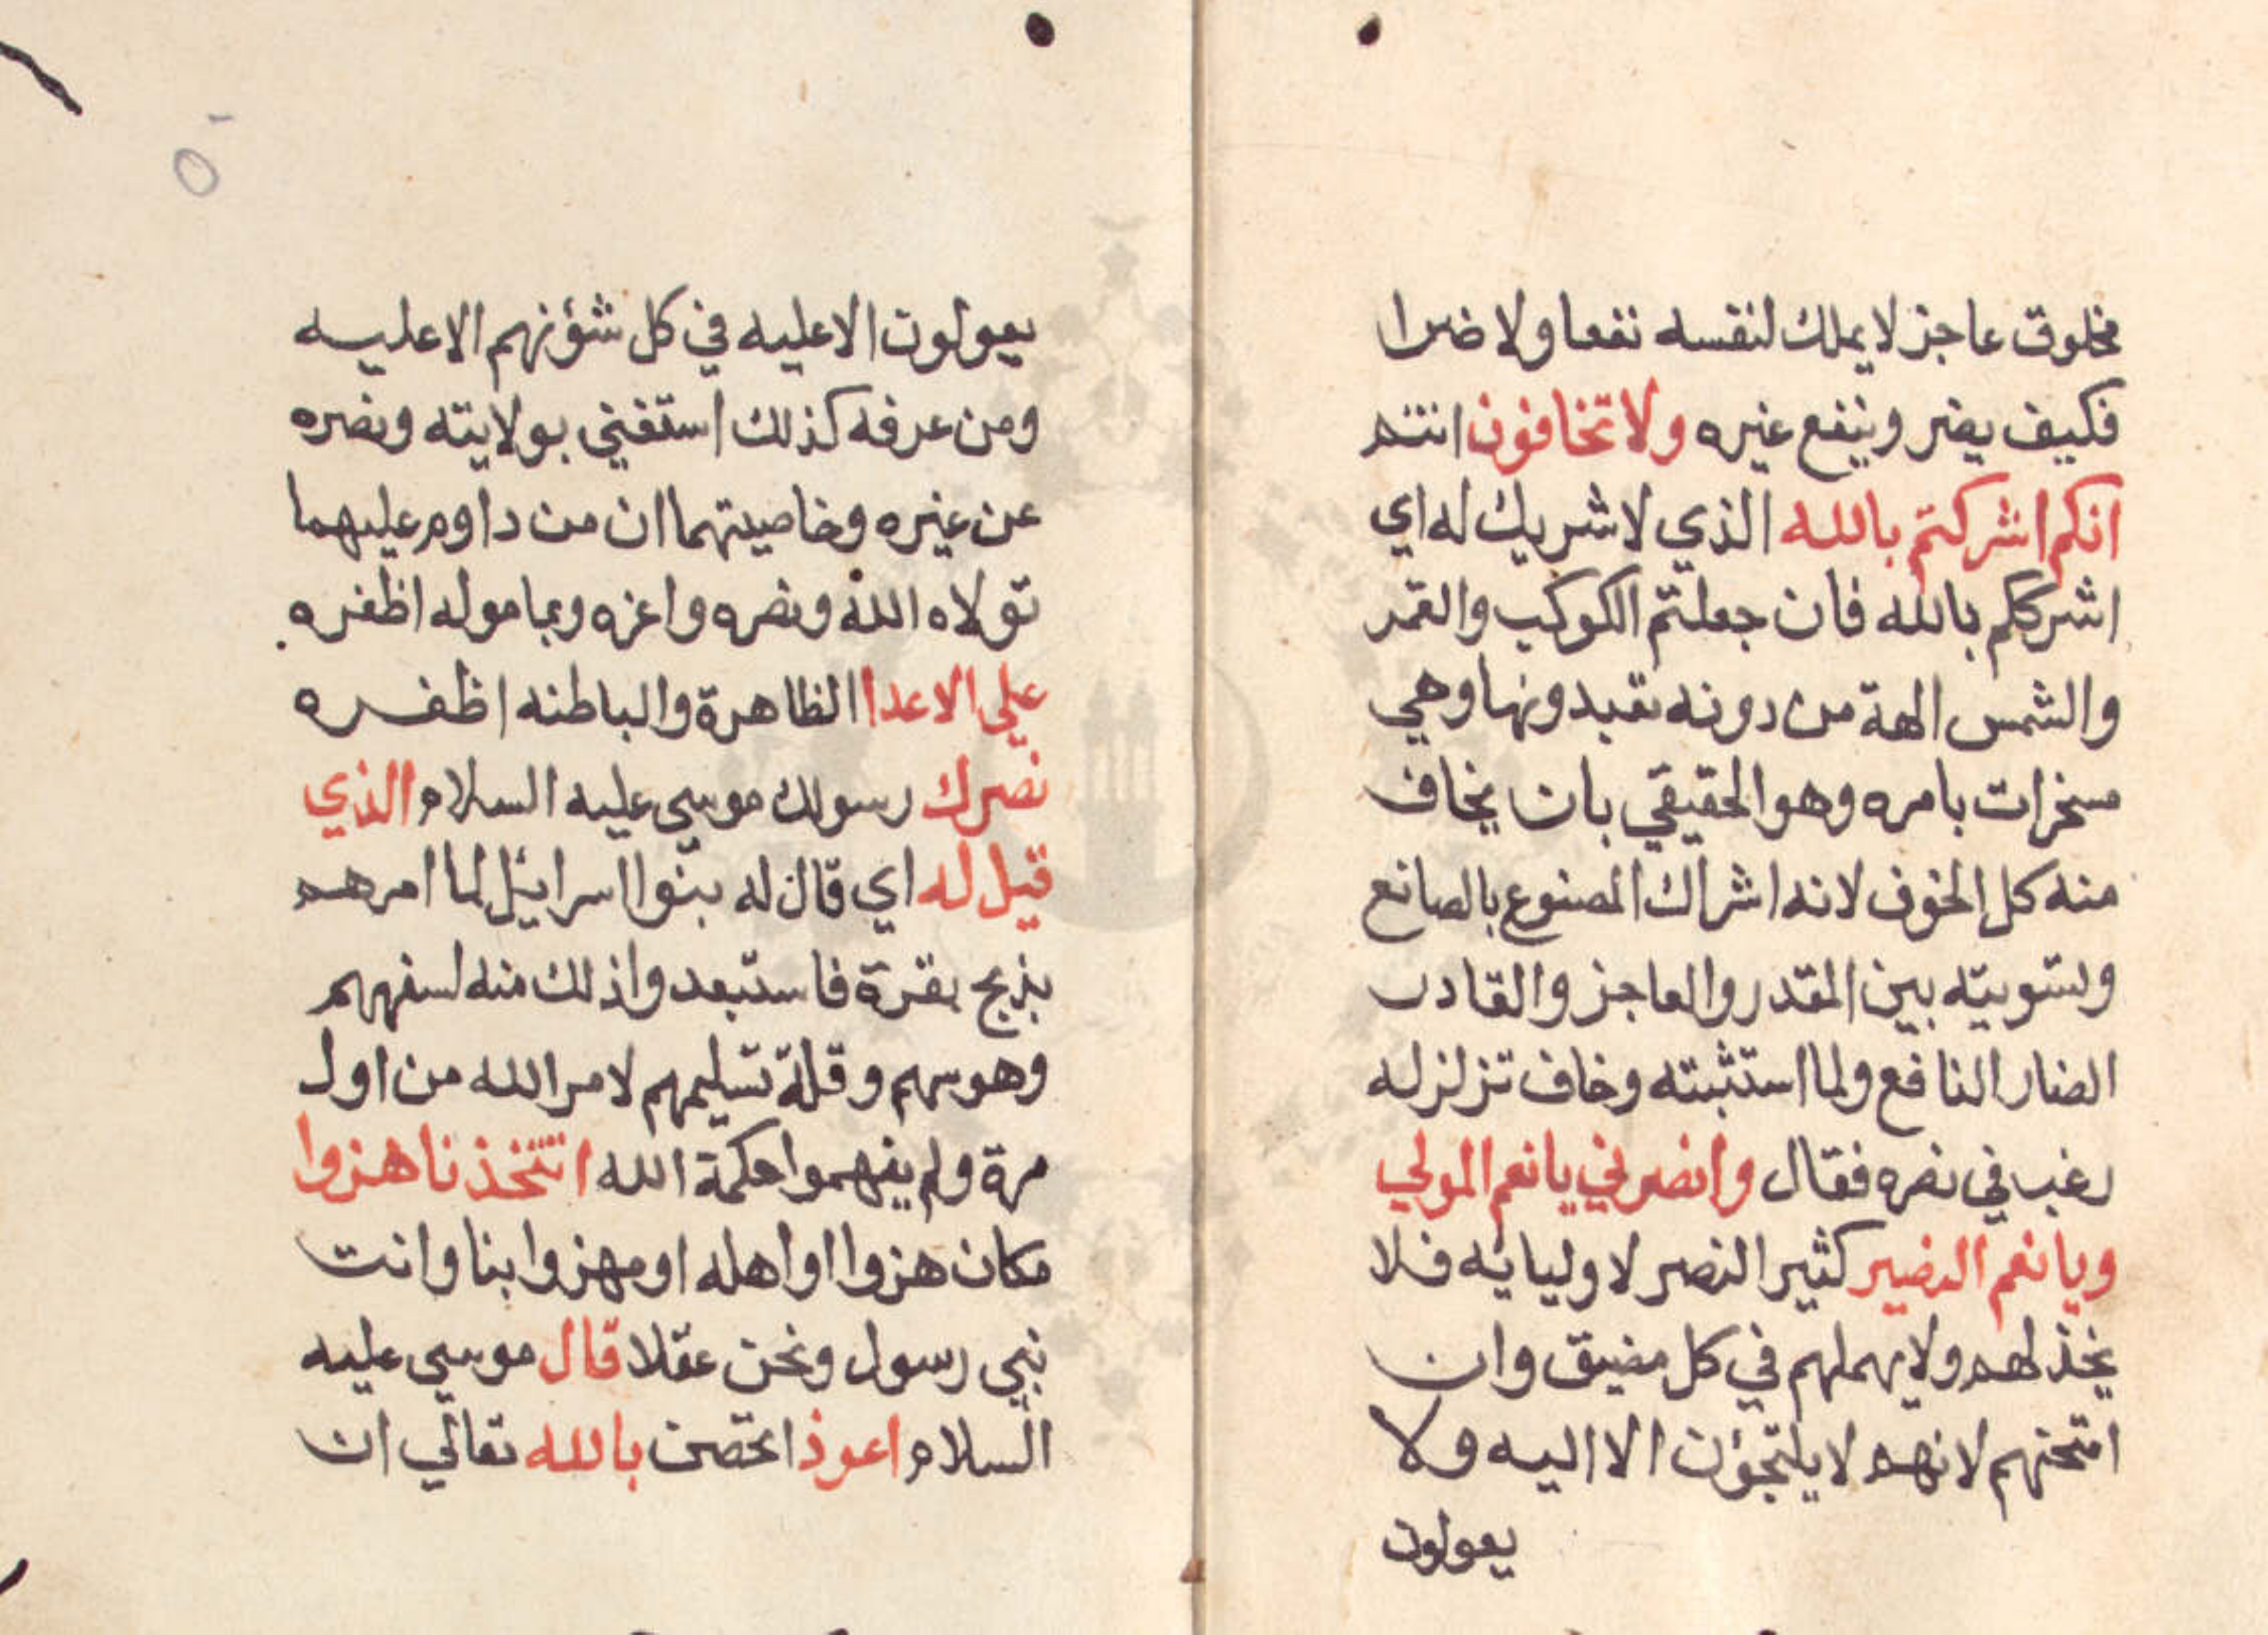 مخلوق عاجز لا يملك لنفسه نفعا ولا ضرا
فكيف يضر وينفع غيره ولا تخافون انتم
انكم اشركتم بالله الذي لا شريك له اي
اشرككم بالله فان جعلتم الكوكب والقمر
والشمس الهة من دونه تعبدونها وهي
مسخرات بامره وهو الحقيقي بان يخاف
منه كل الخوف لانه اشراك المصنوع بالصانع
وتسويته بين المقدر والعاجز والقادر
الضار النافع ولما استثبته وخاف تزلزله
رغب في نصره فقال وانصرني يا نعم المولي
ويا نعم النصير كثير النصر لاوليايه فلا
يخذلهم ولا يهملهم في كل مضيق وان
امتحنهم لانهم لا يلتجؤن الا اليه ولا
يعولون
يعولون الا عليه في كل شؤنهم الا عليه
ومن عرفه كذلك استغني بولايته ونصره
عن غيره وخاصيتهما ان من داوم عليهما
تولاه الله ونصره واعزه وبماموله اظفره
علي الاعدا الظاهرة والباطنه اظفره
نصرك رسولك موسي عليه السلام الذي
قيل له اي قال له بنوا اسرايئل لما امرهم
بذبح بقرة فاستبعدوا ذلك منه لسفههم
وهوسهم وقلة تسليمهم لامر الله من اول
مرة ولم يفهموا حكمة الله اتتخذنا هزوا
مكان هزوا او اهله او مهزوا بنا وانت
نبي رسول ونحن عقلا قال موسي عليه
السلام اعوذ اتحصن بالله تعالي ان